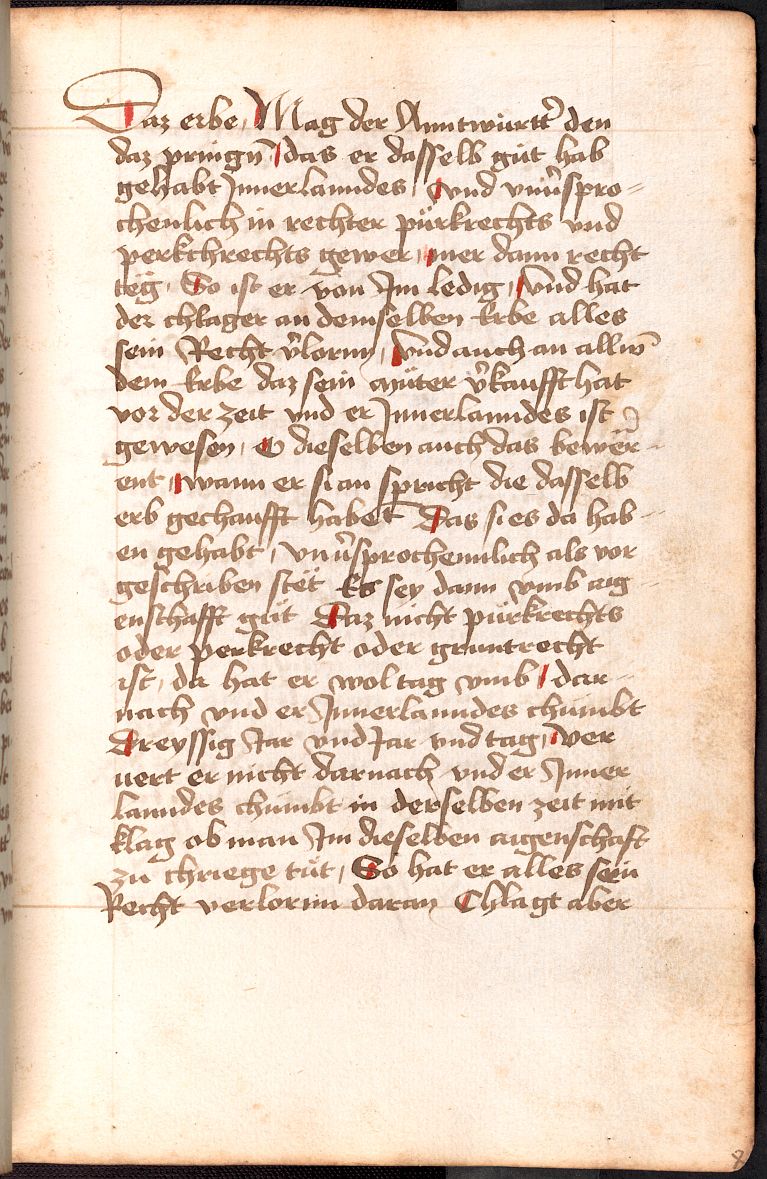 Daz erbe, Mag der Anntwurtt̄ den
daz pringn̄ das er dasselb gůt hab
gehabt Innerlanndes Vnd vnūspro=
chenlich in rechter pürkrechts vnd
perkchrechts gewer, mer dann recht
täg, So ist er von Im ledig, Vnd hat
der chlager an demselben Erbe alles
sein Recht v̄lornn, Vnd auch an allm̄
dem Erbe daz sein müter v̄kaufft hat
vor der zeit vnd er Innerlanndes ist
gewesen, O dieselben auch das bewër=
ent, wann er si an spricht die dasselb
erb gechaufft habet Das si es da hab=
en gehabt, vnūsprochennlich als vor
geschriben stët Es sey dann vmb aig=
enschafft gůt Daz nicht purkrechts
oder perkrecht oder gruntrecht
ist, da hat er wol tag vmb, dar=
nach vnd er Innerlanndes chümbt
Dreyssig Jar vnd Jar vnd tag, Ver
uert er nicht darnach vnd er Inner
lanndes chümbt in derselben zeit mit
klag ob man Im dieselben aigenschaft
zu chriege tůt, So hat er alles sein
Recht verlornn daran Chlagt aber
8